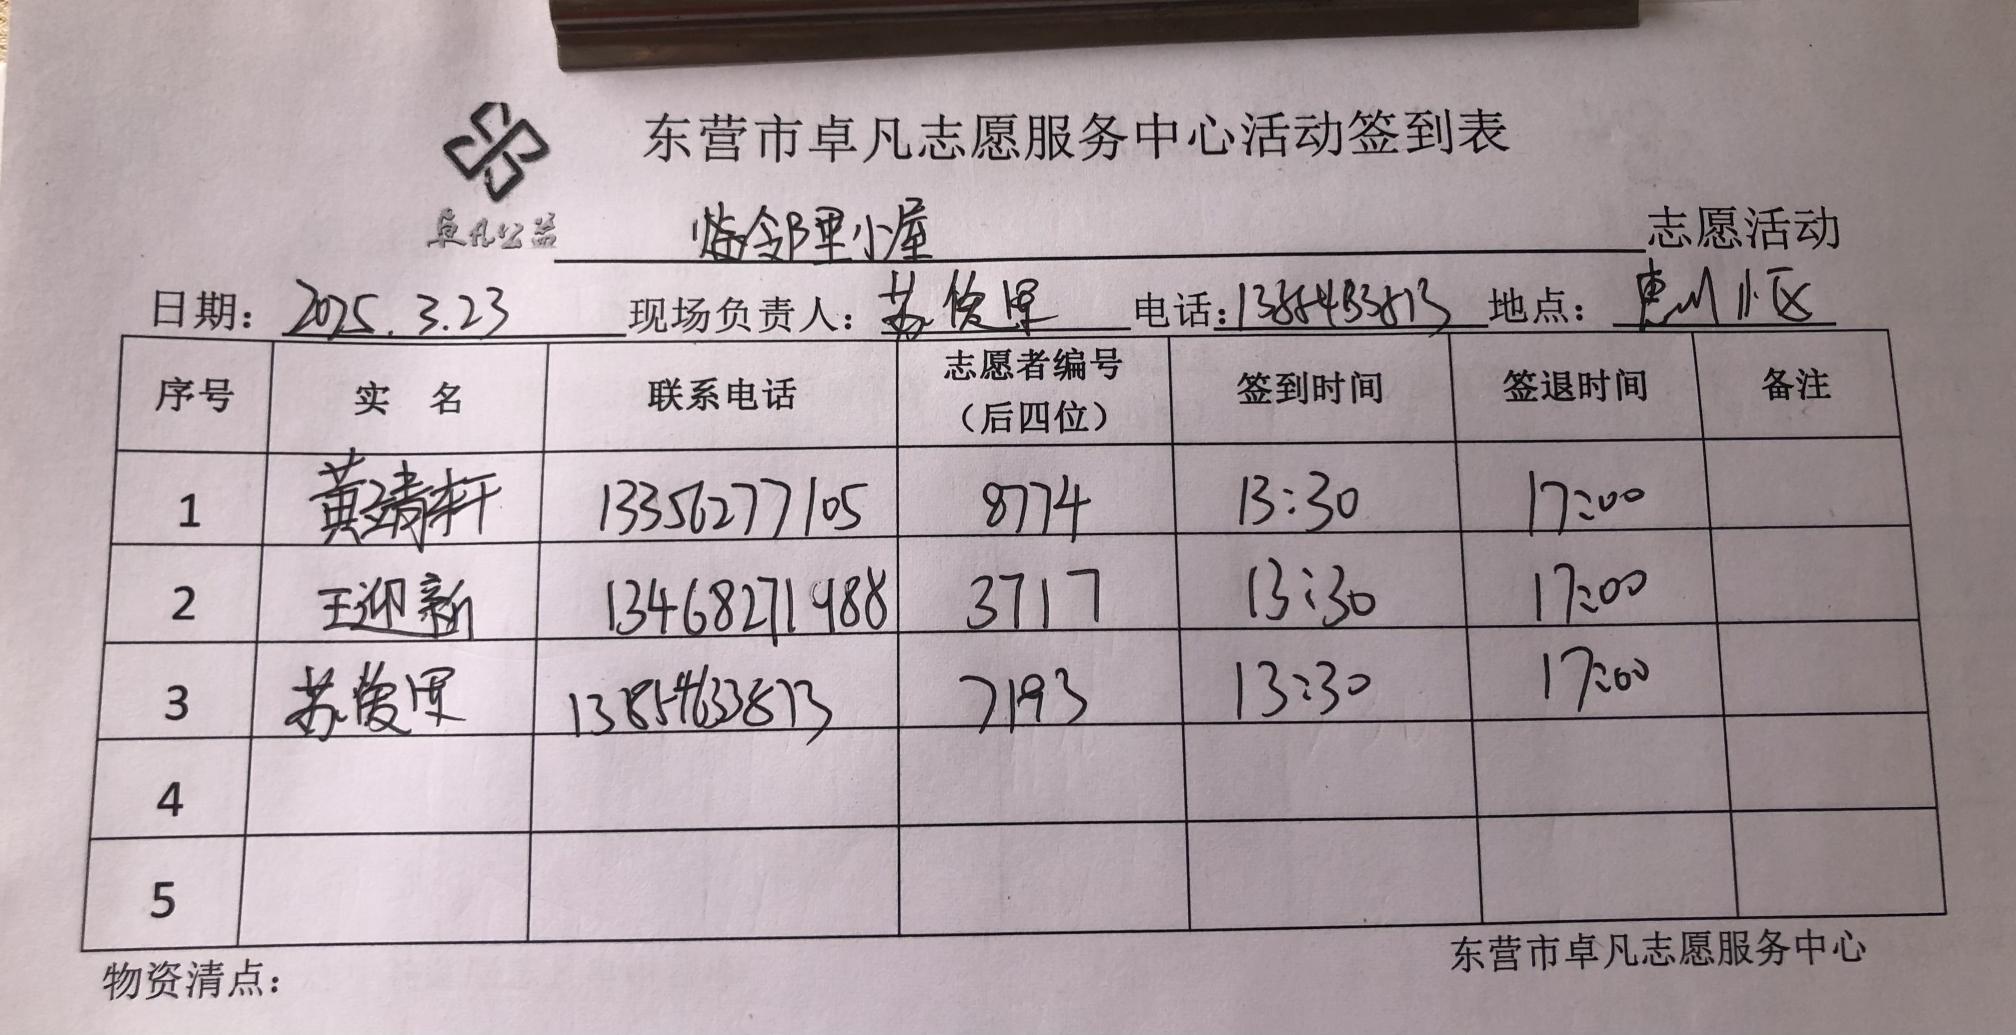 东营市卓凡志愿服务中心活动签到表
卓凡公益 邻里小屋 志愿活动
日期：2025.3.23 现场负责人：苏俊军 电话： 地点：惠州小区
序号 实 名 联系电话 志愿者编号（后四位） 签到时间 签退时间 备注
1 黄靖轩 13356277105 8774 13:30 17:00
2 王迎新 13468271988 3717 13:30 17:00
3 苏俊军 13854633873 7193 13:30 17:00
4
5
物资清点： 东营市卓凡志愿服务中心